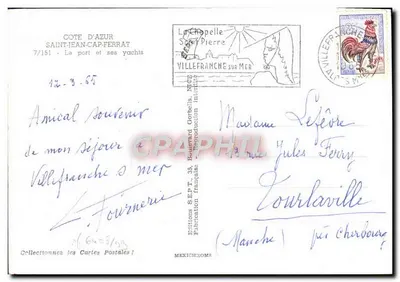 COTE D'AZUR
SAINT-JEAN-CAP-FERRAT
7/151 - Le port et ses yachts
12-3-65
Amical souvenir
de mon séjour à
Villefranche s mer
L. Fournerie
Collectionnez les Cartes Postales !
La Chapelle
St Pierre
VILLEFRANCHE SUR MER
VILLEFRANCHE
Editions S.E.P.T.
Fabrication française
MEXICHROME
Madame Lefèvre
rue Jules Ferry
Tourlaville
(Manche) près Cherbourg